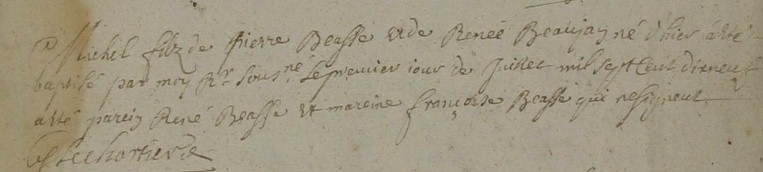 Michel filz de pierre Beasse et de Reneé Beaujan né d'hier a été
baptisé par moy Rr. sousné. le premier iour de Juillet mil sept cent dixneuf
a été parein René Beasse et mareine françoise Beasse qui ne signent.